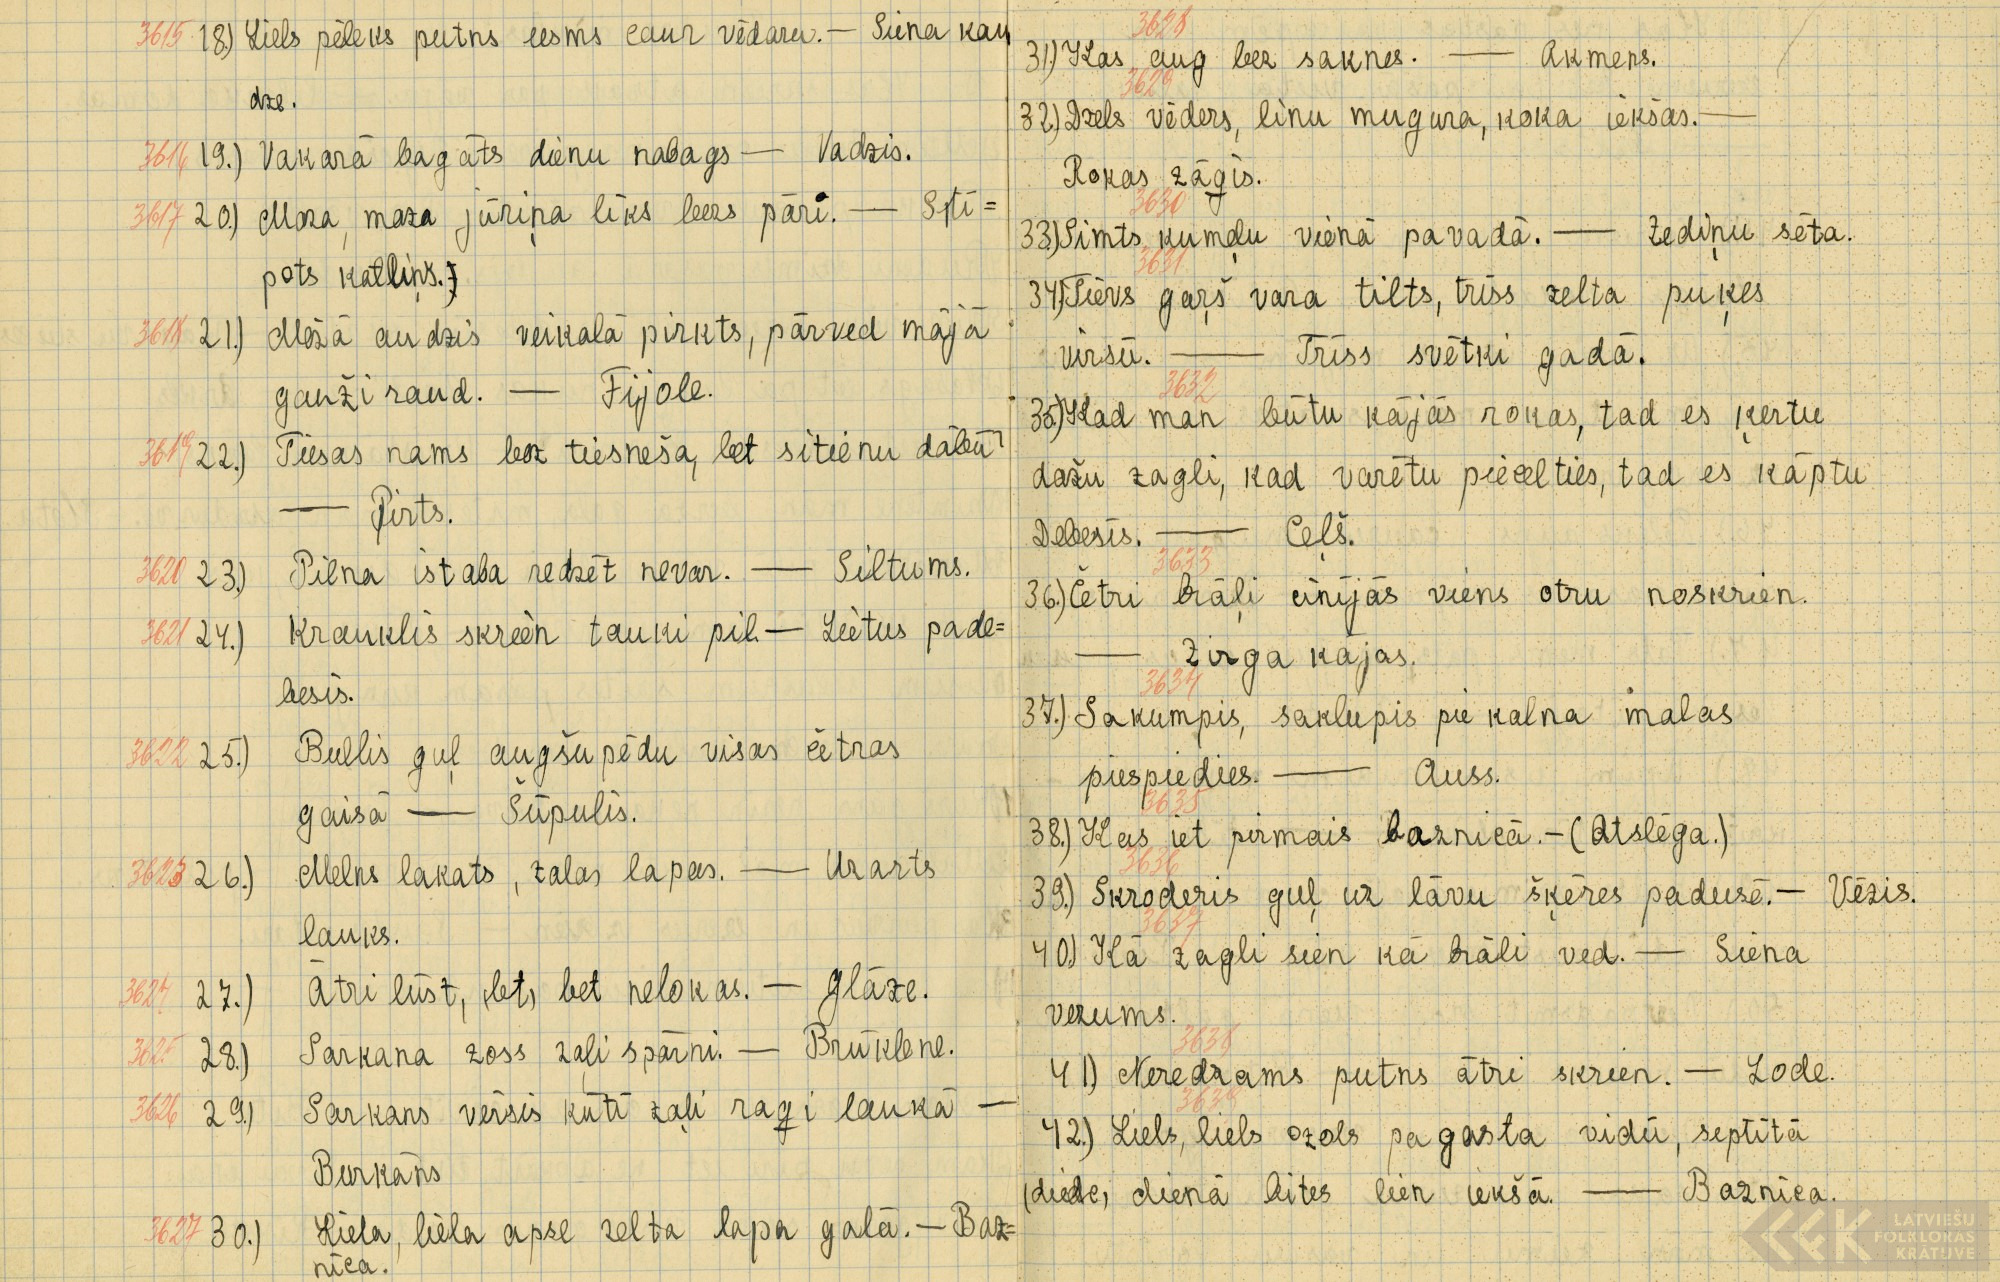 3615 18.) Liels pēleks putns iesms caur vēdaru. — Siena kau
dze.
3616 19.) Vakarā bagāts dienu nabags — Vadzis.
3617 20.) Maza, maza jūriņa līks bezs pāri. — Stī=
pots katliņš.
3618 21.) Mežā audzis veikalā pirkts, pārved mājā
gauži raud. — Fijole.
3619 22.) Tiesas nams bez tiesneša, bet sitienu dabū?
— Pirts.
3620 23.) Pilna istaba redzēt nevar. — Siltums.
3621 24.) Krauklis skrien tauki pil. — Lietus pade=
besis.
3622 25.) Bullis guļ augšupēdu visas četras
gaisā — Šūpulis.
3623 26.) Melns lakats, zaļas lapas. — Urarts
lauks.
3624 27.) Ātri lūst, (bet) bet nelokas. — Glāze.
3625 28.) Sarkana zoss zaļi spārni. — Brūklene.
3626 29.) Sarkans vērsis kūtī zaļi ragi laukā —
Burkāns
3627 30.) Liela, liela apse zelta lapa galā. — Baz=
nīca.
3628
31.) Kas aug bez saknes. — Akmens.
3629
32.) Dzels vēders, linu mugura, koka iekšas. —
Rokas zāģis.
3630
33.) Simts kumeļu vienā pavadā. — Zediņu sēta.
3631
34.) Tievs gaŗš vara tilts, trīss zelta puķes
virsū. — Trīss svētki gadā.
3632
35.) Kad man būtu kājās rokas, tad es ķertu
dažu zagli, kad varētu piecelties, tad es kāptu
Debesīs. — Ceļš.
3633
36.) Četri brāļi cīnījās viens otru noskrien.
— Zirga kājas.
3634
37.) Sakumpis, saklupis pie kalna malas
piespiedies. — Auss.
3635
38.) Kas iet pirmais baznīcā. — (Atslēga.)
3636
39.) Skroderis guļ uz lāvu šķēres padusē. — Vēzis.
3637
40.) Kā zagli sien kā brāli ved. — Siena
vezums.
3638
41.) Neredzams putns ātri skrien. — Lode.
3639
42.) Liels, liels ozols pagasta vidū, septītā
(diede) dienā bites lien iekšā. — Baznīca.
LATVIEŠU
FOLKLORAS
KRĀTUVE